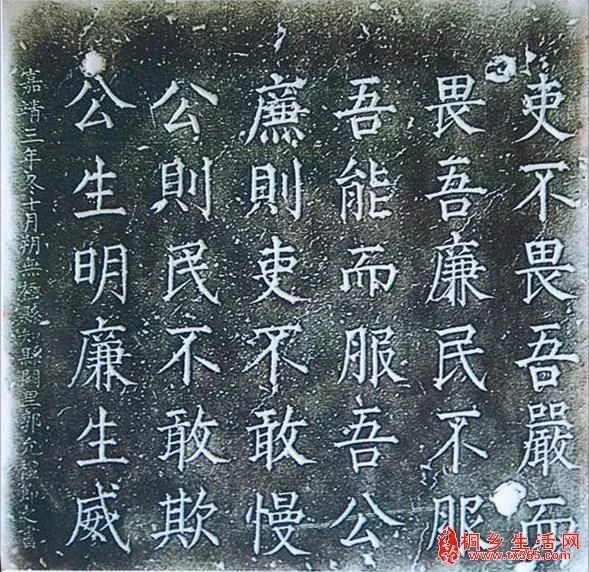 吏不畏吾嚴而
畏吾廉民不服
吾能而服吾公
廉則吏不敢慢
公則民不敢欺
公生明廉生威
嘉靖三年冬十月朔無極
郭允礼
桐乡生活网
www.tx365.com